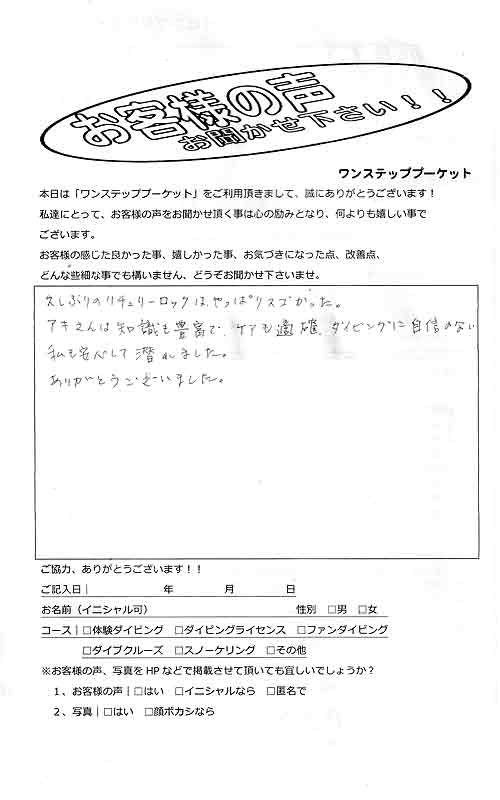 お客様の声
お聞かせ下さい！！
ワンステッププーケット
本日は「ワンステッププーケット」をご利用頂きまして、誠にありがとうございます！
私達にとって、お客様の声をお聞かせ頂く事は心の励みとなり、何よりも嬉しい事で
ございます。
お客様の感じた良かった事、嬉しかった事、お気づきになった点、改善点、
どんな些細な事でも構いません、どうぞお聞かせ下さいませ。
久しぶりのリチェリーロックは、やっぱりスゴかった。
アキさんは知識も豊富で、ケアも適確、ダイビングに自信のない
私も安心して潜れました。
ありがとうございました。
ご協力、ありがとうございます！！
ご記入日｜　年　月　日
お名前（イニシャル可）　性別　□男　□女
コース｜□体験ダイビング　□ダイビングライセンス　□ファンダイビング
□ダイブクルーズ　□スノーケリング　□その他
※お客様の声、写真をHPなどで掲載させて頂いても宜しいでしょうか？
１、お客様の声｜□はい　□イニシャルなら　□匿名で
２、写真｜□はい　□顔ボカシなら